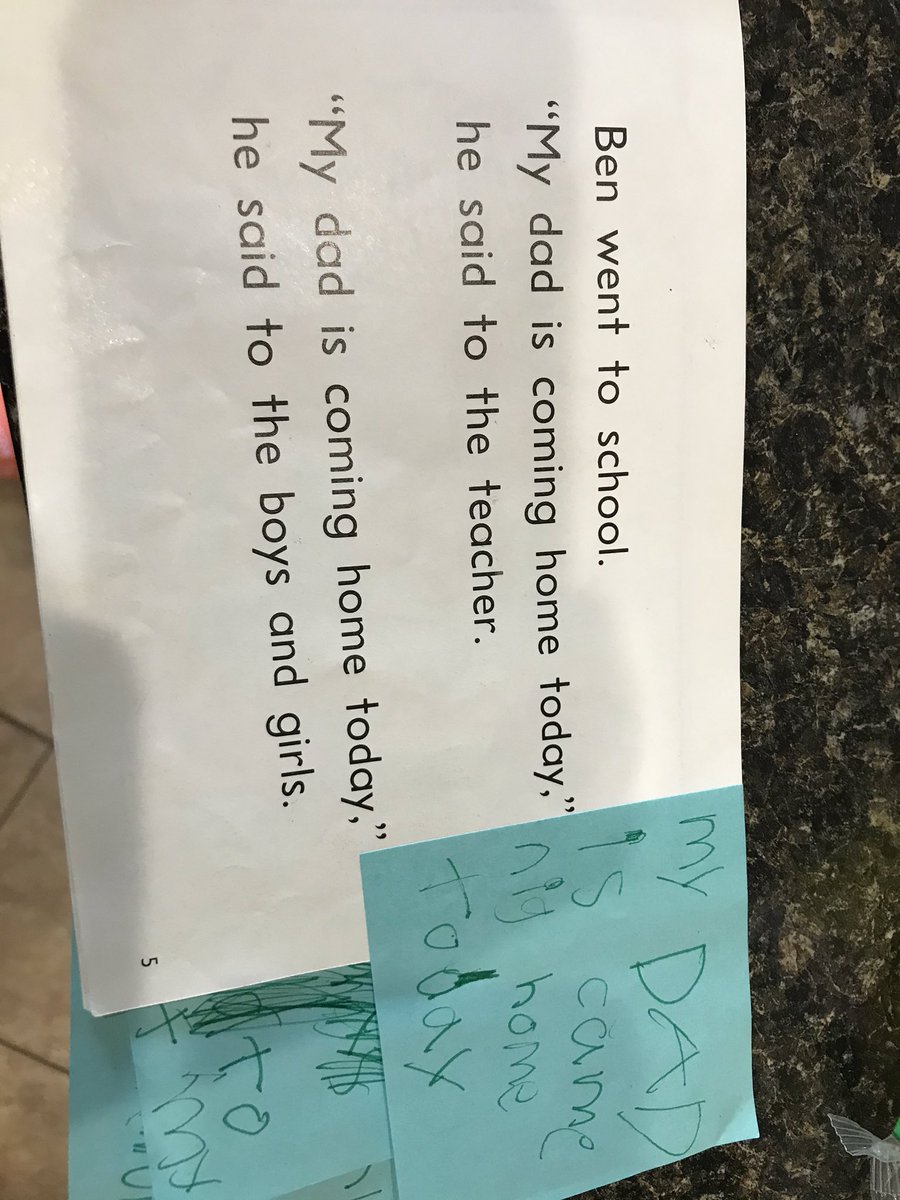 Ben went to school.
“My dad is coming home today,”
he said to the teacher.
“My dad is coming home today,”
he said to the boys and girls.
5
my DAD
is came
nig home
today
to